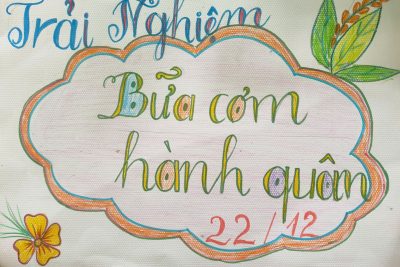 Trải Nghiệm
Bữa cơm
hành quân
22/12